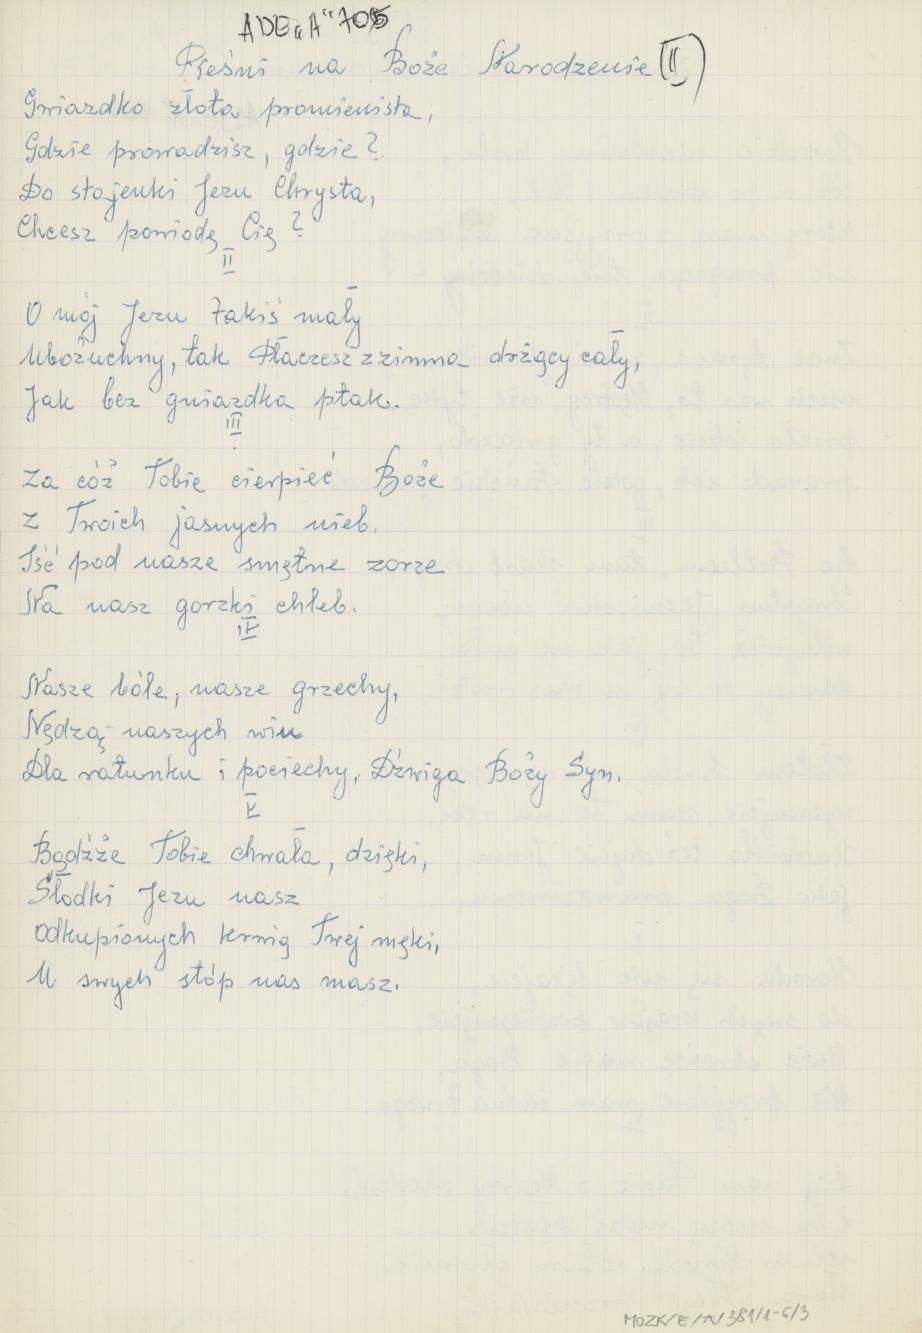 ADE „A" 705
Pieśni na Boże Narodzenie (II)
Gwiazdko złota promienista,
Gdzie prowadzisz, gdzie?
Do stajenki Jezu Chrysta,
Chcesz powiodę Cię?
II
O mój Jezu Takiś mały
Ubożuchny, tak Płaczesz z zimna drżący cały,
Jak bez gniazdka ptak.
III
Za cóż Tobie cierpieć Boże
Z Twoich jasnych nieb.
Iść pod nasze smętne zorze
Na nasz gorzki chleb.
IV
Nasze bóle, nasze grzechy,
Nędzą naszych win
Dla ratunku i pociechy, Dźwiga Boży Syn.
V
Bądźże Tobie chwała, dzięki,
Słodki Jezu nasz
Odkupionych krwią Twej męki,
U swych stóp nas masz.
MOZK/E/A/381/1-6/3